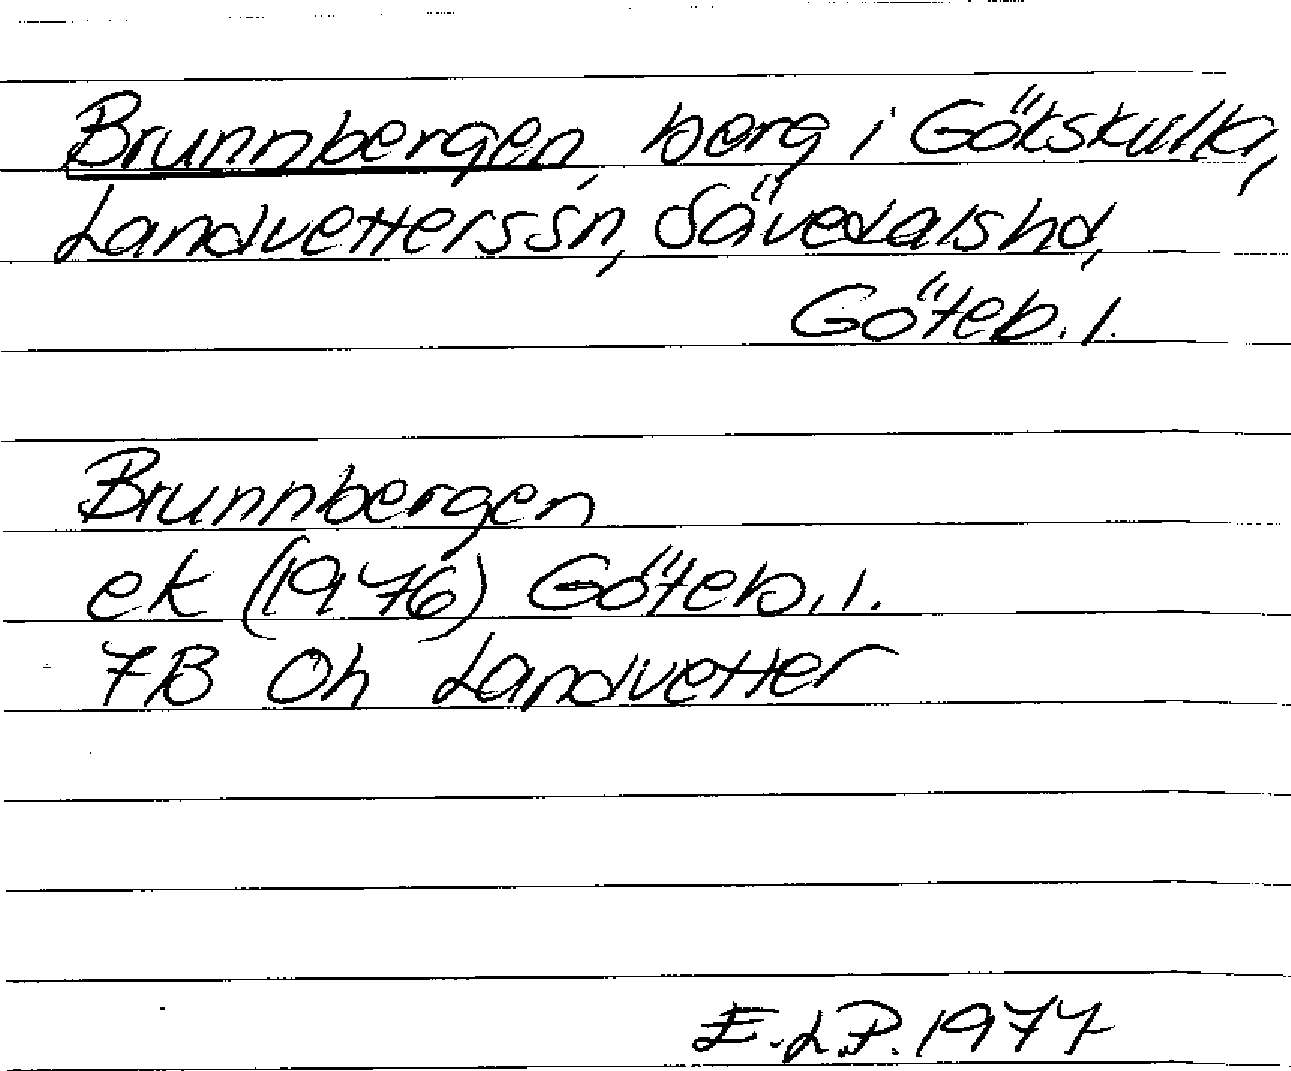 Brunnbergen, berg i Gökskulla,
Landvetters sn, Sävedals hd,
Göteb. l.
Brunnbergen
ek (1976) Göteb. l.
7B 0h Landvetter
E.L.P. 1977